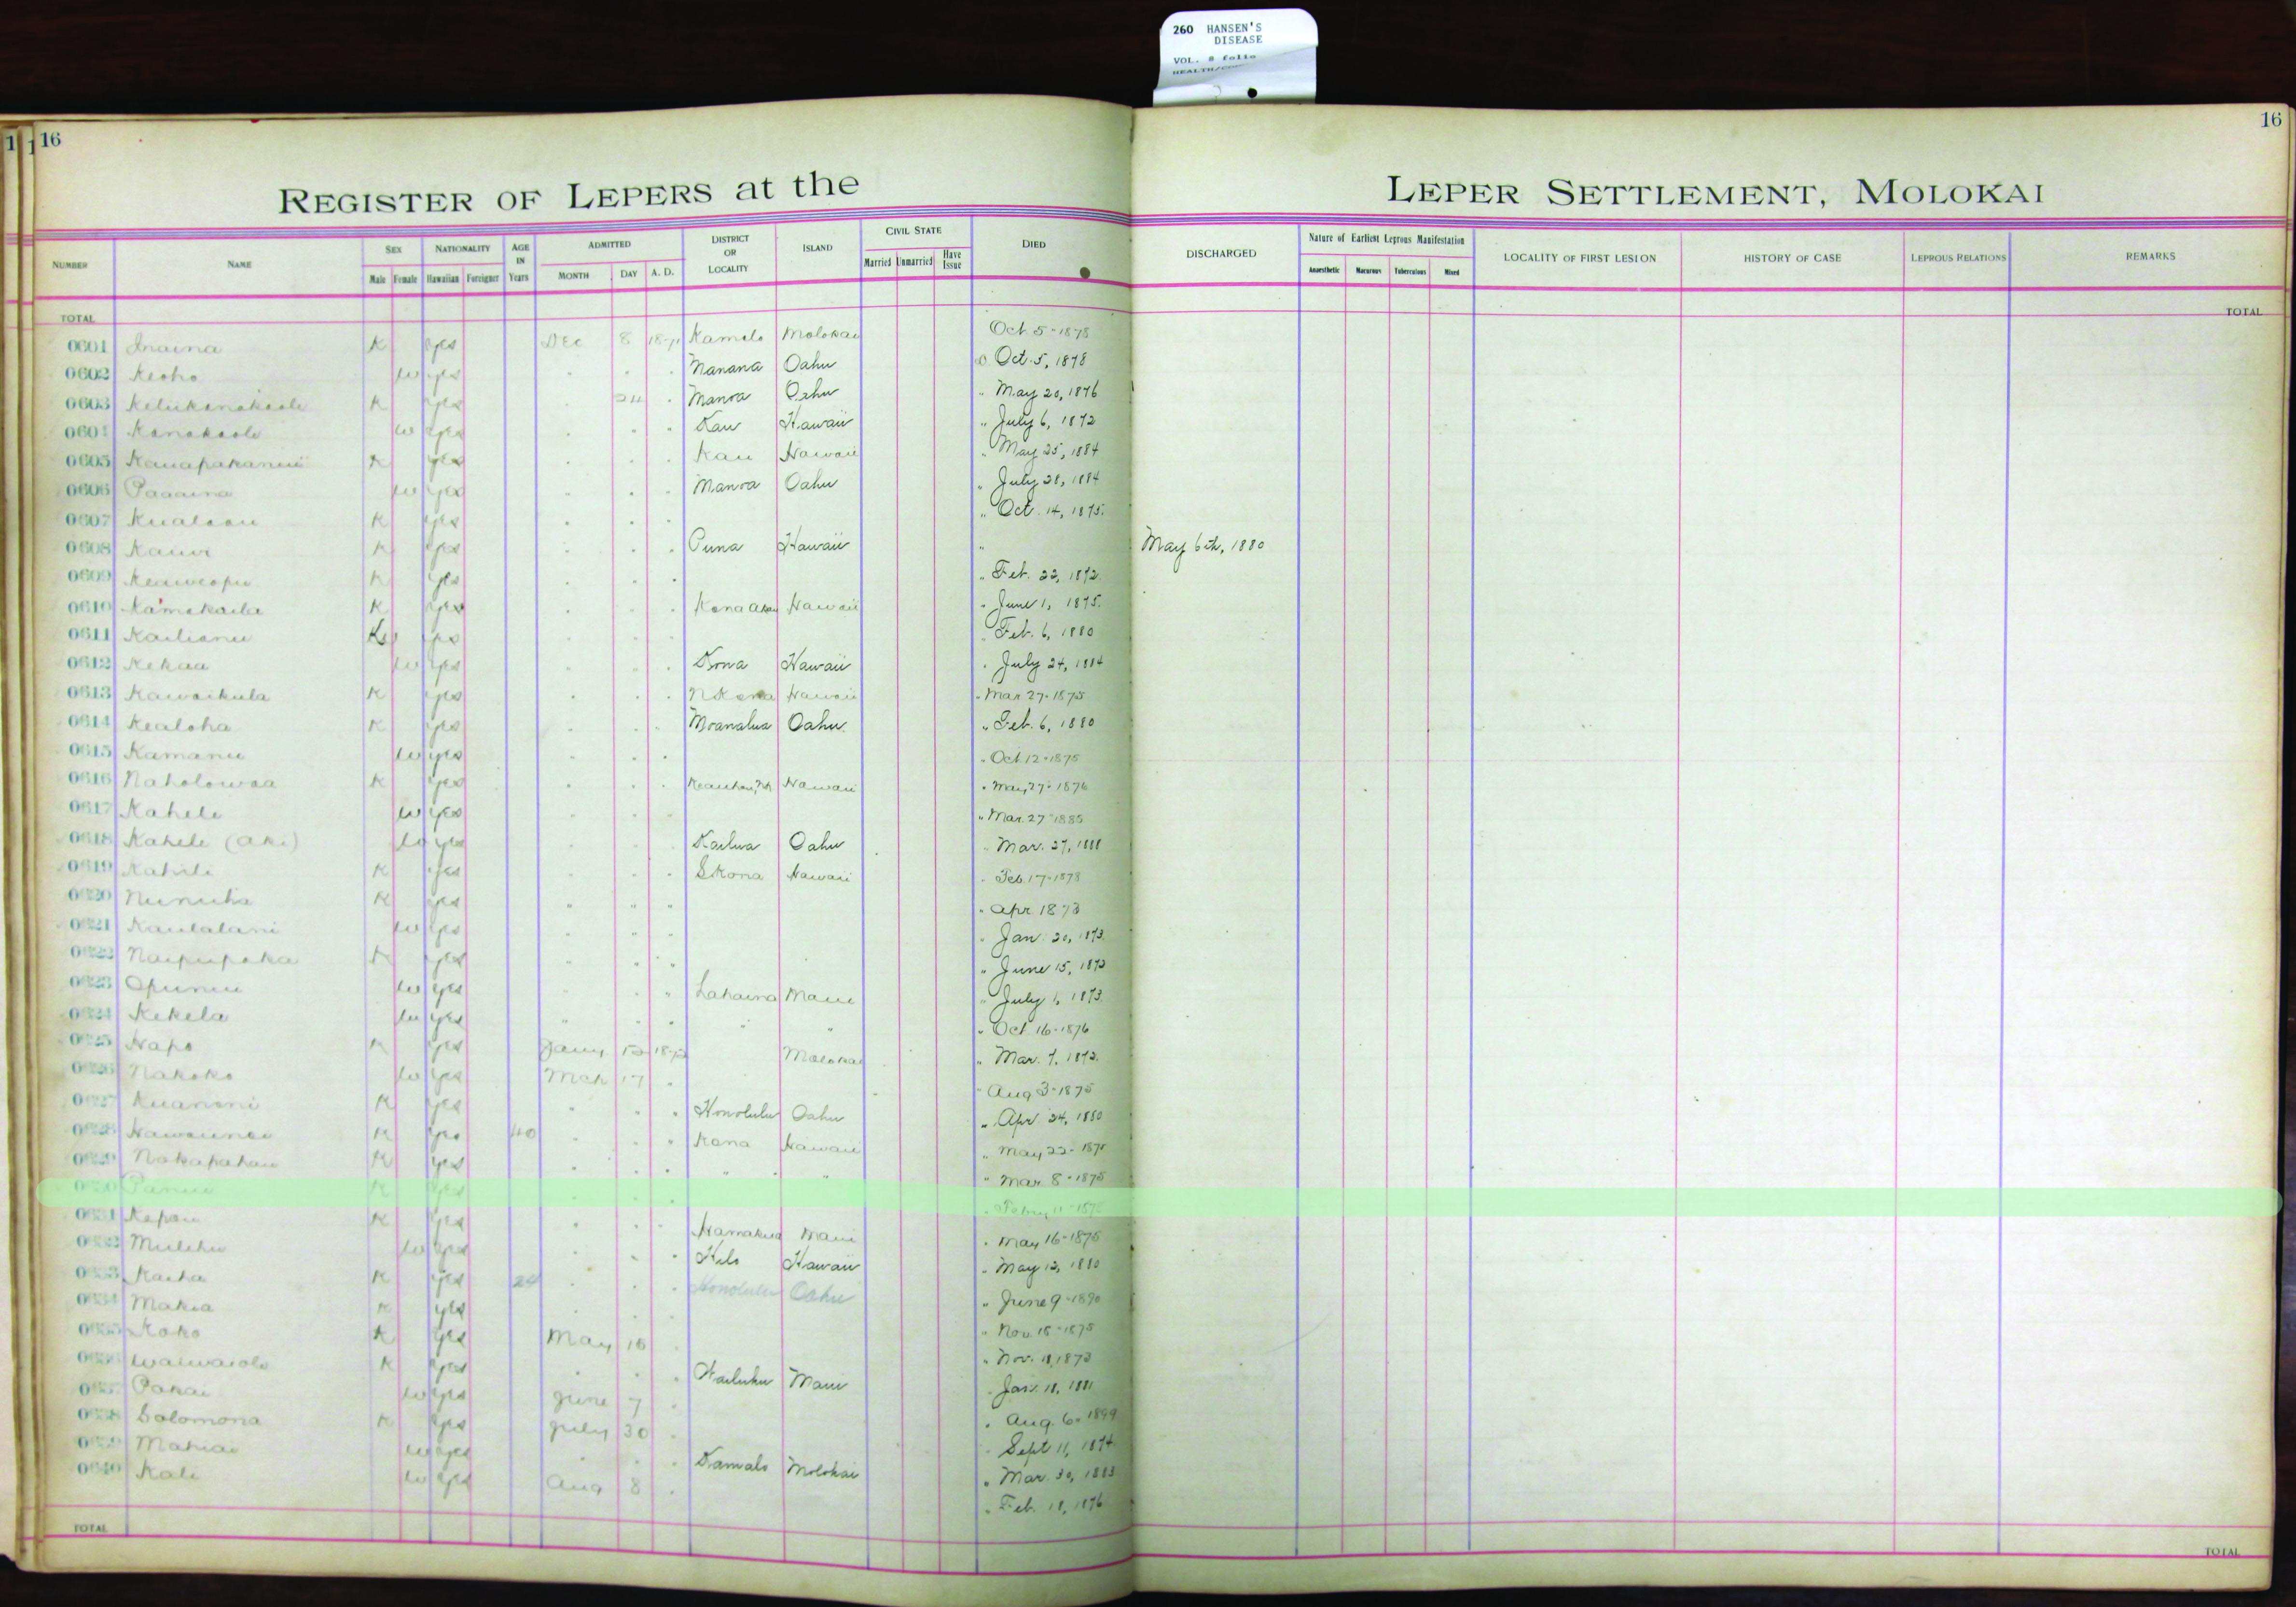 260 HANSEN'S
DISEASE
VOL. 8 folio
16
16
REGISTER OF LEPERS at the LEPER SETTLEMENT, MOLOKAI
NUMBER NAME SEX NATIONALITY AGE IN Years ADMITTED DISTRICT OR LOCALITY ISLAND CIVIL STATE DIED DISCHARGED Nature of Earliest Leprous Manifestation LOCALITY OF FIRST LESION HISTORY OF CASE LEPROUS RELATIONS REMARKS
Male Female Hawaiian Foreigner MONTH DAY A. D. Married Unmarried Have Issue Anaesthetic Macurous Tuberculous Mixed
TOTAL TOTAL
0601 Inaina K yes Dec 8 1871 Kamalo Molokai Oct 5-1878
0602 Keoho w yes . . . Manana Oahu D Oct. 5, 1878
0603 K yes . 24 . Manoa Oahu " May 20, 1876
0604 Kanakaole w yes . . . Kau Hawaii " July 6, 1872
0605 Kauapakaninii K yes . . . Kau Hawaii " May 25, 1884
0606 Paaaina w yes . . . Manoa Oahu " July 28, 1884
0607 K yes . . . " Oct. 14, 1875.
0608 Kauwi K yes . . . Puna Hawaii " May 6th, 1880
0609 Keaweopu K yes . . . " Feb. 22, 1872.
0610 Kamakaila K yes . . . Kona Akau Hawaii " June 1, 1875.
0611 Kailianu yes . . . " Feb. 6, 1880
0612 Kekaa w yes . . . Kona Hawaii " July 24, 1884
0613 Kawaikula K yes . . . N Kona Hawaii " Mar 27-1875
0614 Kealoha K yes . . . Moanalua Oahu " Feb. 6, 1880
0615 Kamanu w yes . . . " Oct 12-1875
0616 Naholowaa K yes . . . Keauhou, NK Hawaii " May 27-1876
0617 Kahele w yes . . . " Mar. 27-1885
0618 Kahele (aki) w yes . . . Kailua Oahu " Mar. 27, 1888
0619 K yes . . . S Kona Hawaii " Feb. 17-1878
0620 K yes " " " " Apr 1873
0621 Kaulalani w yes . " . " Jan. 20, 1873.
0622 Naipupaka K yes . . . " June 15, 1873
0623 Opunui w yes . . " Lahaina Maui " July 1, 1873.
0624 Kekela w yes " . . " " " Oct 16-1876
0625 Hapo K yes Jany 1872 Molokai " Mar. 7, 1872.
0626 Nakoko w yes Mch 17 . " Aug 3-1875
0627 Kuanoni K yes . . . Honolulu Oahu " Apr. 24, 1880
0628 K yes 40 . . " Kona Hawaii " May 22-1875
0629 Nakapahau K yes . . . " " " Mar 8-1875
0630 K yes . . . " Feby 11-1875
0631 Kepau K yes . . . Hamakua Maui " May 16-1875
0632 Mulehu w yes . . . Hilo Hawaii " May 13, 1880
0633 Kaiha K yes 24 . . . Honolulu Oahu " June 9-1890
0634 Makia K yes . . . " Nov. 18-1875
0635 Koko K yes May 10 . " Nov. 11, 1873
0636 Waiwaiole K yes . . . Wailuku Maui " Jan. 11, 1881
0637 Pakai w yes June 7 . " Aug. 6-1899
0638 Solomona K yes July 30 . " Sept 11, 1874
0639 Mahiai w yes . . . Kamalo Molokai " Mar. 30, 1883
0640 Kali w yes Aug 8 . " Feb. 18, 1876
TOTAL TOTAL